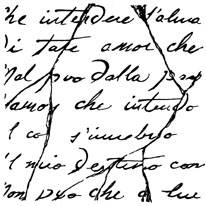 he intendere l'alma
i tale amor che
al può dalla
amor che intendo
l co s'innebrio
l mio destino con
on può che a lue